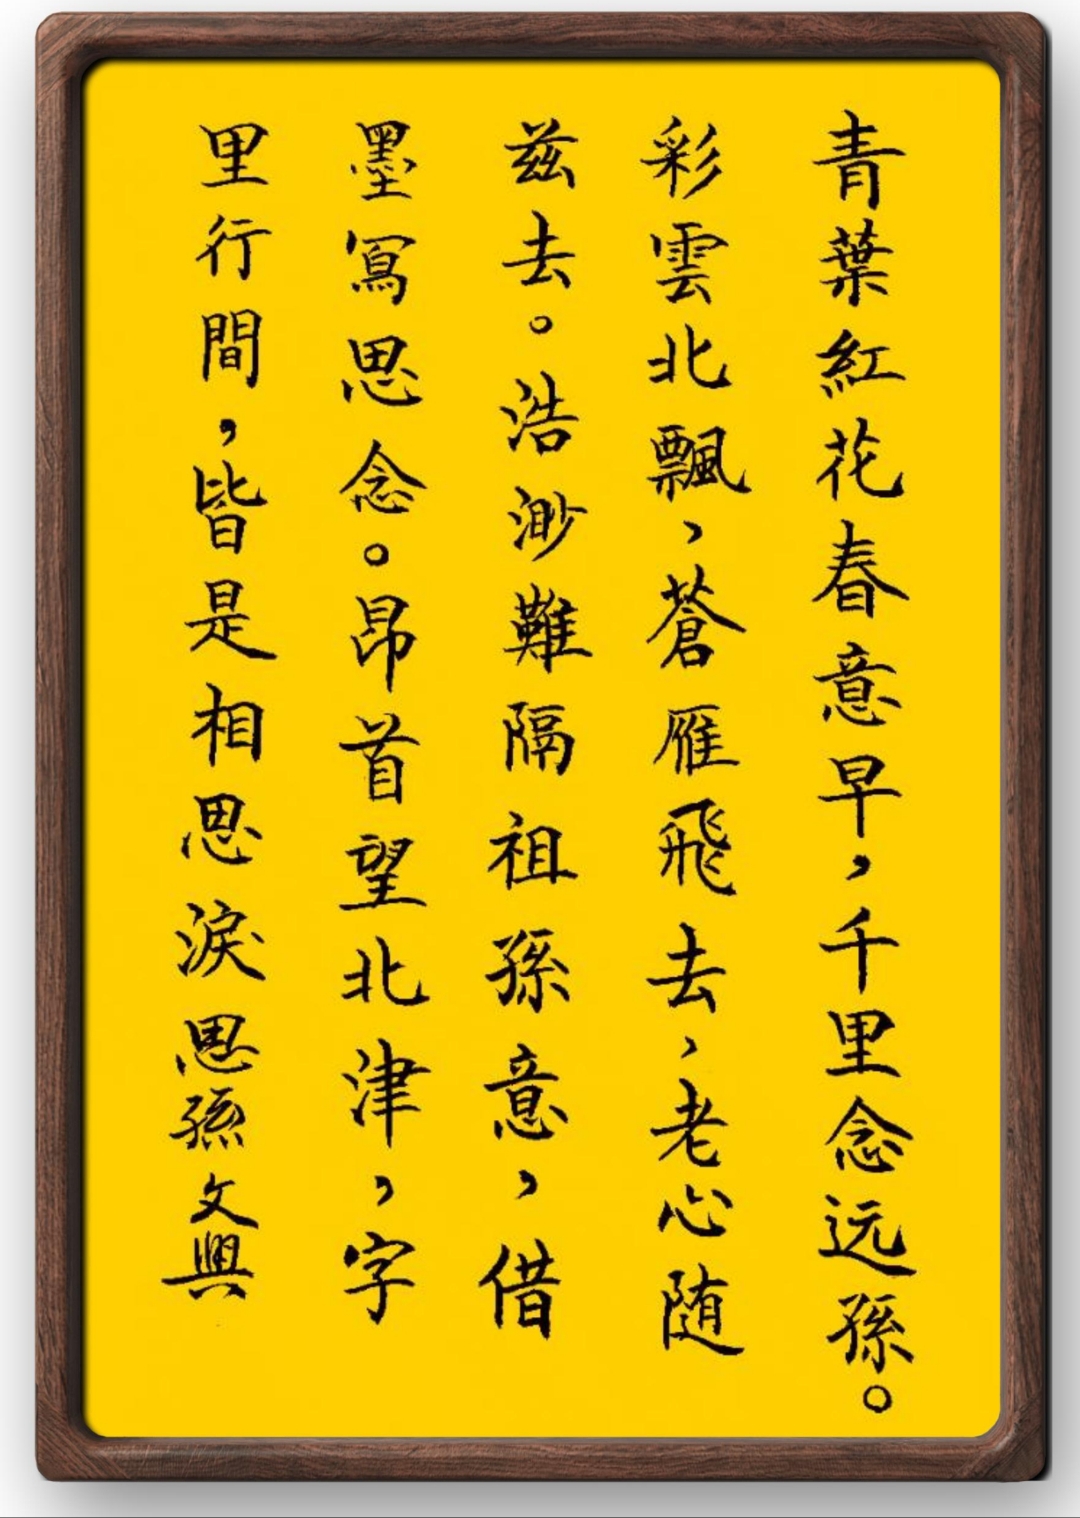 青葉紅花春意早，千里念远孫。
彩雲北飄，蒼雁飛去，老心随
兹去。浩渺難隔祖孫意，借
墨寫思念。昂首望北津，字
里行間，皆是相思淚思孫文興